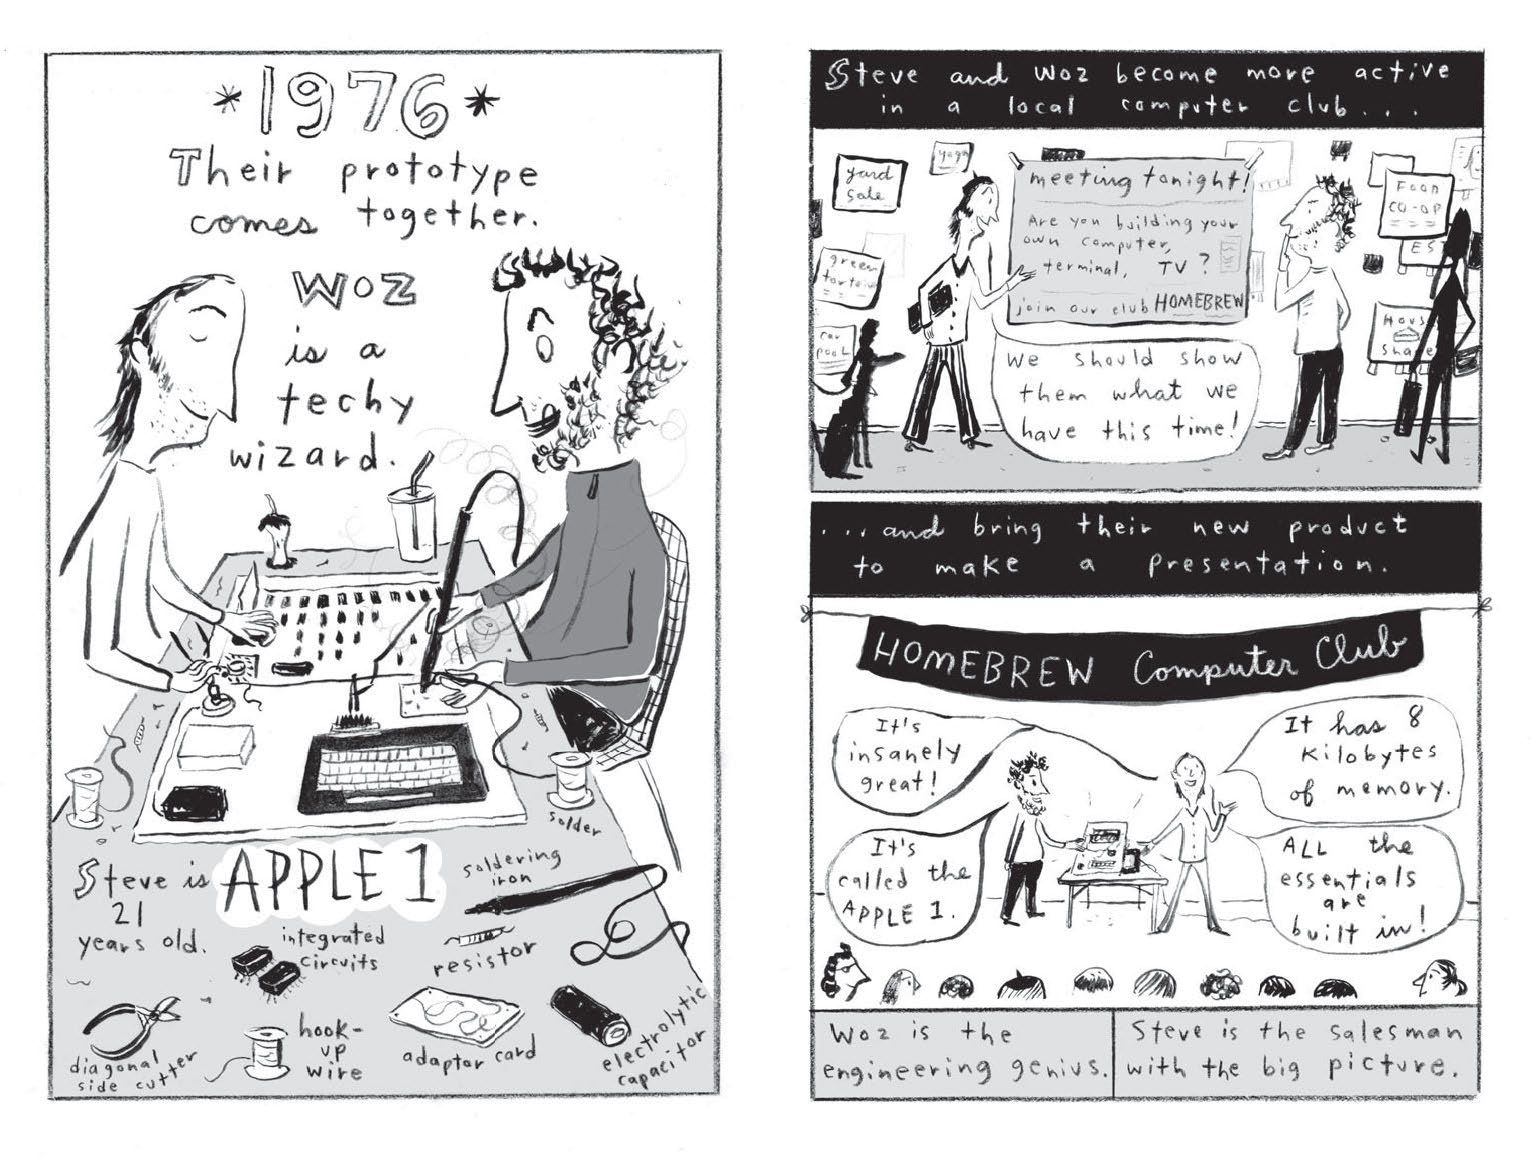 *1976*
Their prototype
comes together.
WOZ
is a
techy
wizard.
solder
Steve is
21
years old.
APPLE 1
soldering
iron
integrated
circuits
resistor
diagonal
side cutter
hook-
up
wire
adaptor card
electrolytic
capacitor
Steve and Woz become more active
in a local computer club....
yard
sale
yoga
green
tortoise
car
pool
meeting tonight!
Are you building your
own computer,
terminal, TV?
join our club HOMEBREW
FOOD
CO-OP
ES
House
Share
We should show
them what we
have this time!
...and bring their new product
to make a presentation.
HOMEBREW Computer Club
It's
insanely
great!
It has 8
Kilobytes
of memory.
It's
called the
APPLE 1.
ALL the
essentials
are
built in!
Woz is the
engineering genius.
Steve is the salesman
with the big picture.